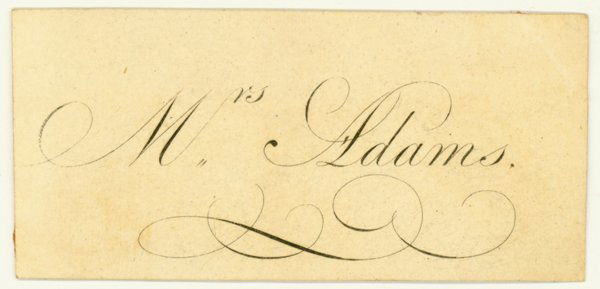 Mrs Adams.